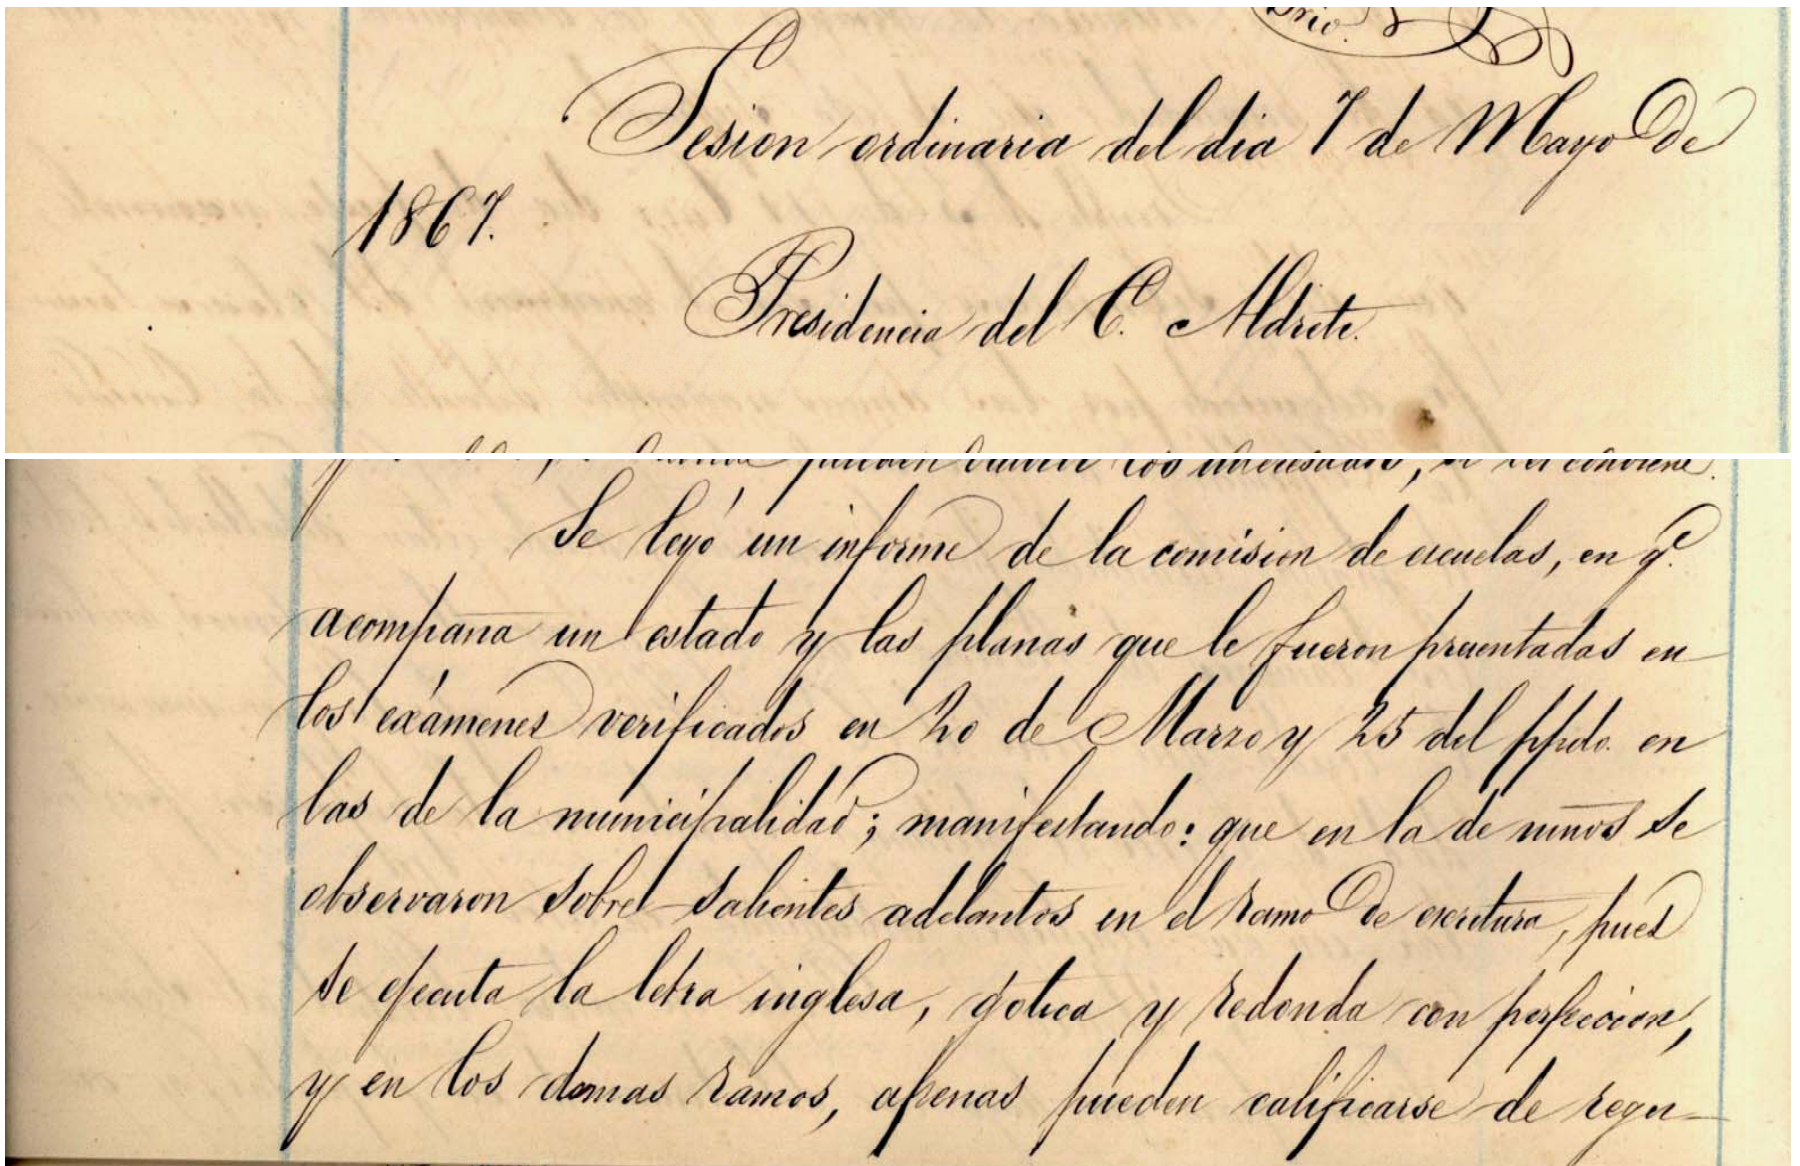 Srio.
Sesion ordinaria del dia 7 de Mayo de
1867.
Presidencia del C. Aldrete.
pueden los interesados, si les conviene.
Se leyó un informe de la comision de escuelas, en qe.
acompaña un estado y las planas que le fueron presentadas en
los exámenes verificados en 20 de Marzo y 25 del ppdo. en
las de la municipalidad; manifestando: que en la de niños se
observaron sobre-salientes adelantos en el ramo de escritura, pues
se ejecuta la letra inglesa, gótica y redonda con perfeccion,
y en los demas ramos, apenas pueden calificarse de regu-